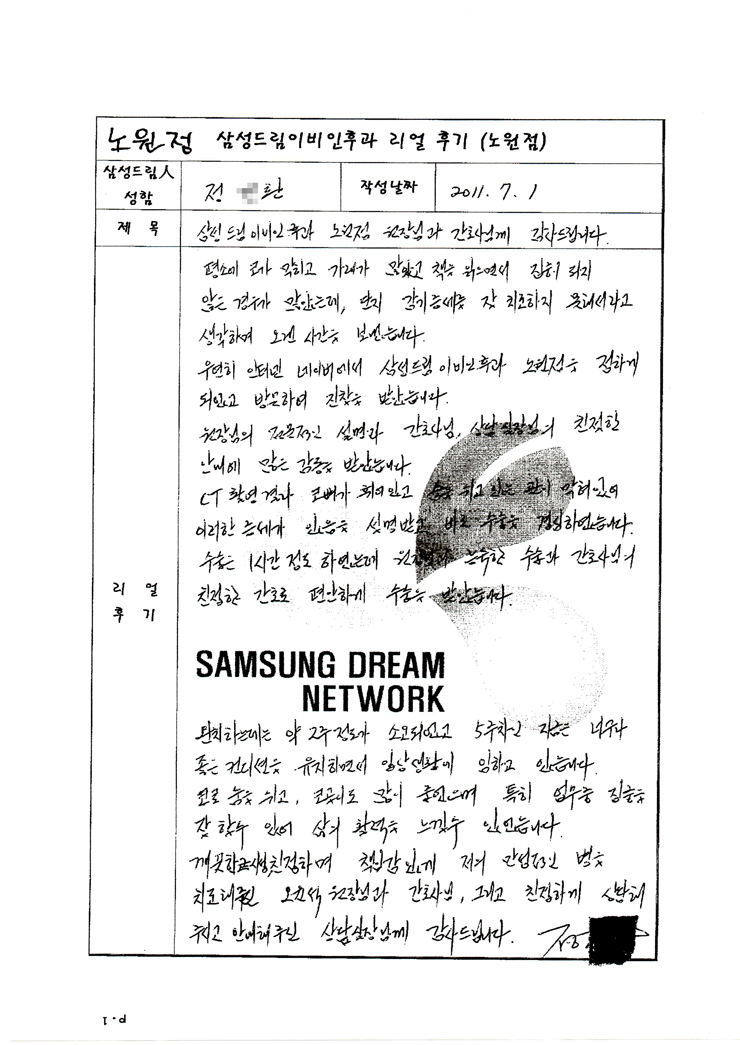 노원점 삼성드림이비인후과 리얼 후기 (노원점)
삼성드림人
성함
정 환
작성날짜
2011. 7. 1
제 목
삼성드림이비인후과 노원점 원장님과 간호사님께 감사드립니다.
평소에 코가 막히고 가래가 많았고 책을 읽으면서 집중 되지
않은 경우가 많았는데, 단지 감기증세를 잘 치료하지 못해서라고
생각하며 오랜 시간을 보냈습니다.
우연히 인터넷 네이버에서 삼성드림이비인후과 노원점을 접하게
되었고 방문하여 진찰을 받았습니다.
원장님의 전문적인 설명과 간호사님, 상담실장님의 친절한
안내에 많은 감동을 받았습니다.
CT 촬영결과 코뼈가 휘어있고 숨을 쉬고 있는 관이 막혀있어
이러한 증세가 있음을 설명받고 바로 수술을 결심하였습니다.
수술은 1시간 정도 하였는데 원장님의 능숙한 수술과 간호사님의
친절한 간호로 편안하게 수술을 받았습니다.
리 얼
후 기
SAMSUNG DREAM
NETWORK
완치하는데는 약 2주정도가 소요되었고 5주차인 지금은 너무나
좋은 컨디션을 유지하면서 일상생활에 임하고 있습니다.
코로 숨을 쉬고, 코골이도 많이 줄었으며 특히 업무중 집중을
잘 할수 있어 삶의 활력을 느낄수 있었습니다.
친절하며 책임감있게 저의 만성적인 병을
치료해주신 원장님과 간호사님, 그리고 친절하게 상담해
주시고 안내해주신 상담실장님께 감사드립니다.
P.1